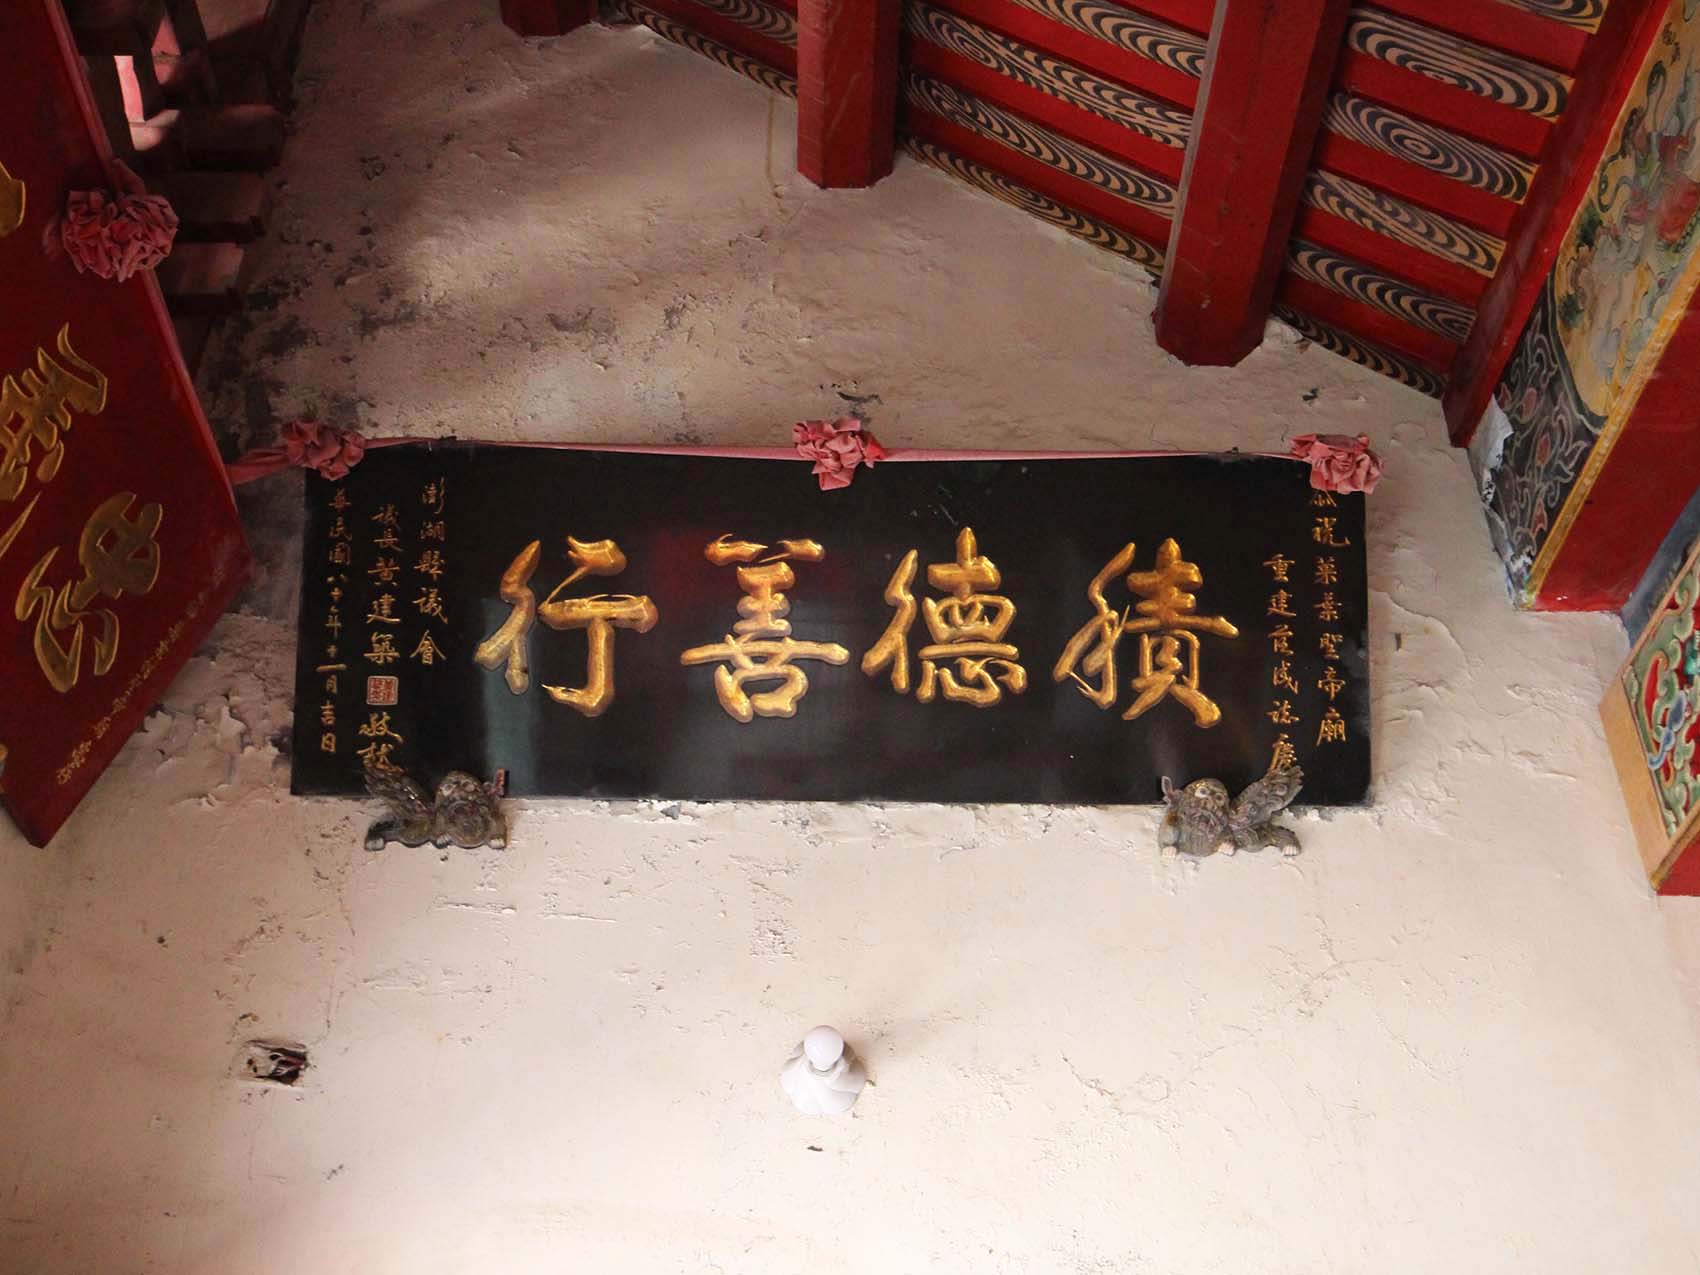 恭祝菜葉聖帝廟
重建落成誌慶
積德善行
澎湖縣議會
議長黃建築
敬獻
華民國八十年十一月吉日